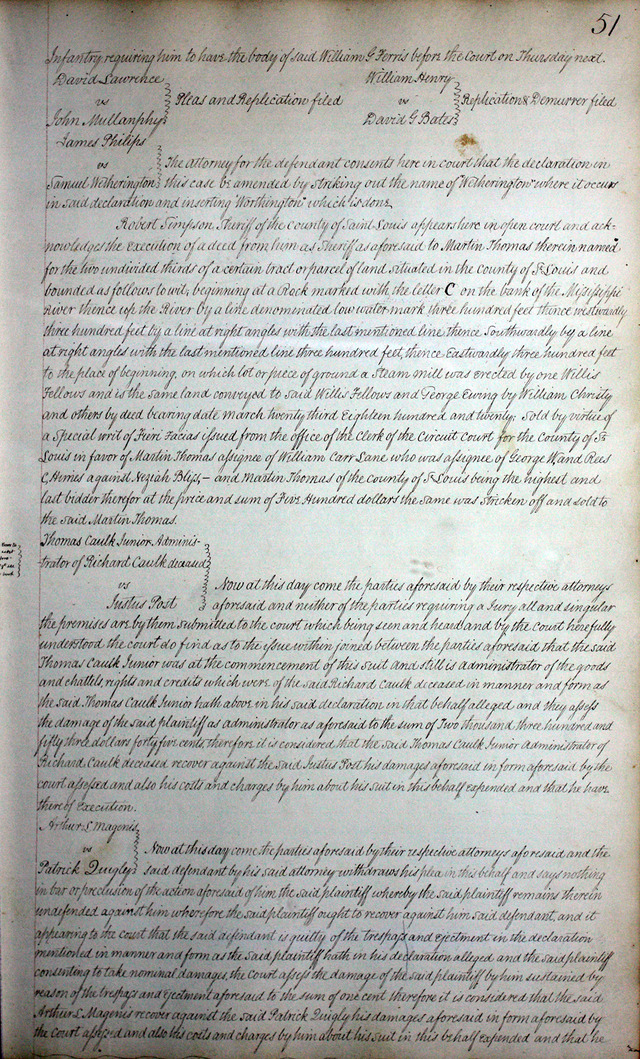 51
Infantry requiring him to have the body of said William G Ferris before the Court on Thursday next.
David Lawrence
vs
John Mullanphy
Pleas and Replication filed
William Henry
vs
David G Bates
Replication & Demurrer filed
James Philips
vs
Samuel Witherington
The Attorney for the defendant consents here in court that the declaration in
this case be amended by striking out the name of "Witherington" where it occurs
in said declaration and inserting "Worthington" which is done.
Robert Simpson Sheriff of the County of Saint Louis appears here in open court and ack-
nowledges the execution of a deed from him as Sheriff as aforesaid to Martin Thomas therein named
for the two undivided thirds of a certain tract or parcel of land situated in the County of St Louis and
bounded as follows to wit, beginning at a Rock marked with the letter C on the bank of the Mississippi
River thence up the River by a line denominated low water mark three hundred feet thence westwardly
three hundred feet by a line at right angles with the last mentioned line thence Southwardly by a line
at right angles with the last mentioned line three hundred feet, thence Eastwardly three hundred feet
to the place of beginning, on which lot or piece of ground a Steam mill was erected by one Willis
Fellows and is the same land conveyed to said Willis Fellows and George Ewing by William Christy
and others by deed bearing date march twenty third Eighteen hundred and twenty; Sold by virtue of
a Special writ of Fieri Facias issued from the office of the Clerk of the Circuit Court for the County of St
Louis in favor of Martin Thomas assignee of William Carr Lane who was assignee of George W. and Rees
C Himes against Neziah Bliss,— and Martin Thomas of the county of St Louis being the highest and
last bidder therefor at the price and sum of Five Hundred dollars the same was stricken off and sold to
the said Martin Thomas.
Thomas Caulk Junior Adminis-
trator of Richard Caulk deceased
vs
Justus Post
Now at this day come the parties aforesaid by their respective attorneys
aforesaid and neither of the parties requiring a Jury all and singular
the premises are by them submitted to the court which being seen and heard and by the Court here fully
understood the court do find as to the issue within joined between the parties aforesaid that the said
Thomas Caulk Junior was at the commencement of this Suit and still is administrator of the goods
and chattels, rights and credits which were of the said Richard Caulk deceased in manner and form as
the said Thomas Caulk Junior hath above in his said declaration in that behalf alleged and they assess
the damage of the said plaintiff as administrator as aforesaid to the sum of Two thousand three hundred and
fifty three dollars forty five cents, therefore it is considered that the said Thomas Caulk Junior Administrator of
Richard Caulk deceased recover against the said Justus Post his damages aforesaid in form aforesaid by the
court assessed and also his costs and charges by him about his suit in this behalf expended and that he have
thereof Execution.
Arthur L Magenis
vs
Patrick Quigly
Now at this day come the parties aforesaid by their respective attorneys aforesaid and the
said defendant by his said attorney withdraws his plea in this behalf and says nothing
in bar or preclusion of the action aforesaid of him the said plaintiff whereby the said plaintiff remains therein
undefended against him wherefore the said plaintiff ought to recover against him said defendant, and it
appearing to the court that the said defendant is guilty of the trespass and ejectment in the declaration
mentioned in manner and form as the Said plaintiff hath in his declaration alleged and the Said plaintiff
consenting to take nominal damages, the Court assess the damage of the said plaintiff by him sustained by
reason of the trespass and ejectment aforesaid to the sum of one cent therefore it is considered that the said
Arthur L. Magenis recover against the Said Patrick Quigly his damages aforesaid in form aforesaid by
the court assessed and also his costs and charges by him about his suit in this behalf expended and that he